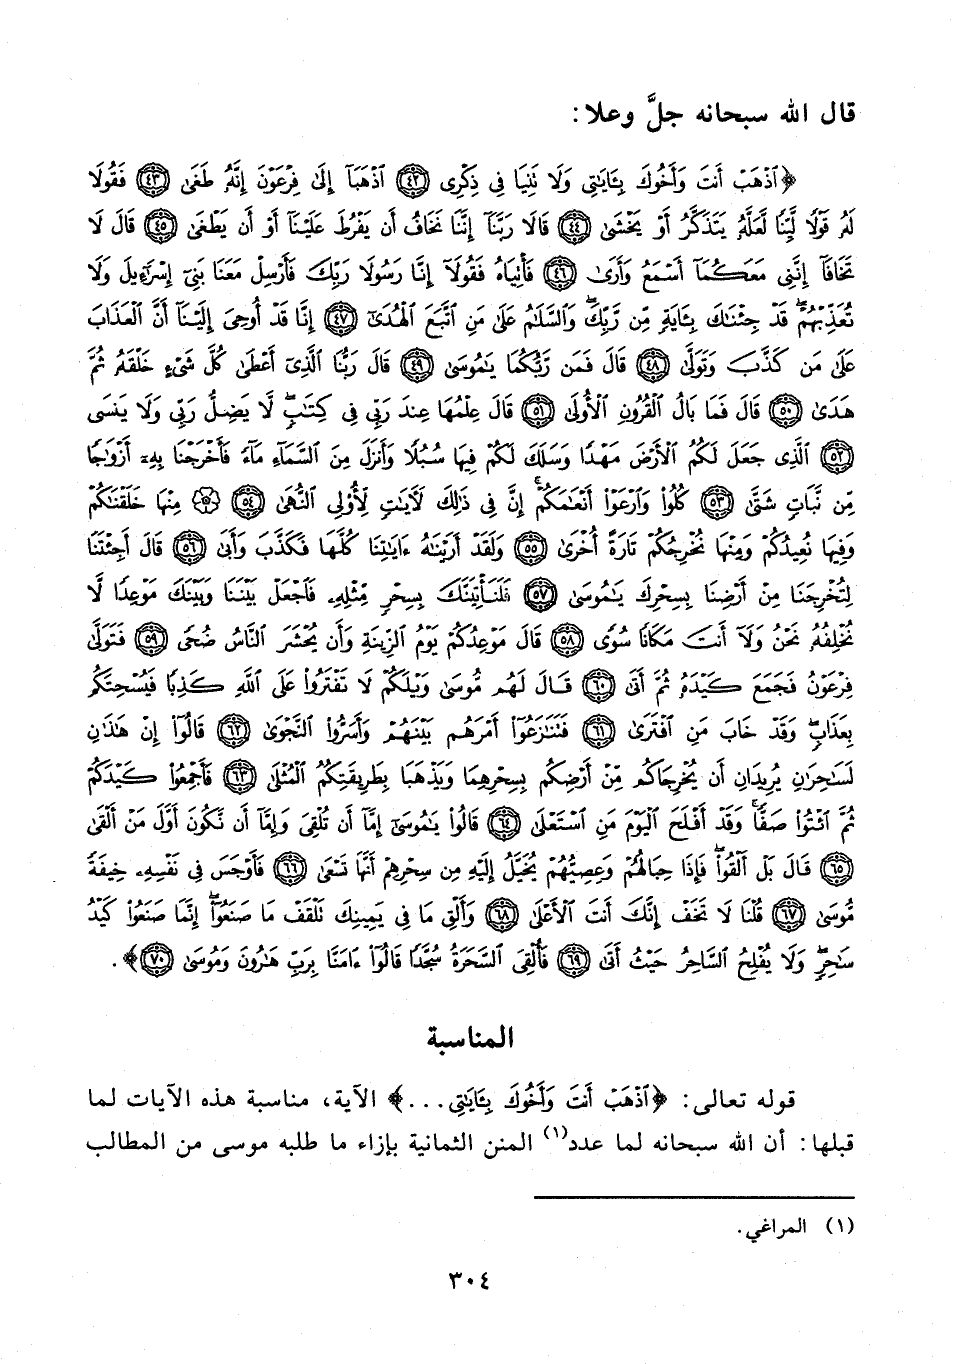 قال الله سبحانه جلَّ وعلا:
﴿ٱذْهَبْ أَنتَ وَأَخُوكَ بِـَٔايَٰتِى وَلَا تَنِيَا فِى ذِكْرِى ٤٢ ٱذْهَبَآ إِلَىٰ فِرْعَوْنَ إِنَّهُۥ طَغَىٰ ٤٣ فَقُولَا
لَهُۥ قَوْلًا لَّيِّنًا لَّعَلَّهُۥ يَتَذَكَّرُ أَوْ يَخْشَىٰ ٤٤ قَالَا رَبَّنَآ إِنَّنَا نَخَافُ أَن يَفْرُطَ عَلَيْنَآ أَوْ أَن يَطْغَىٰ ٤٥ قَالَ لَا
تَخَافَآ إِنَّنِى مَعَكُمَآ أَسْمَعُ وَأَرَىٰ ٤٦ فَأْتِيَاهُ فَقُولَآ إِنَّا رَسُولَا رَبِّكَ فَأَرْسِلْ مَعَنَا بَنِىٓ إِسْرَٰٓءِيلَ وَلَا
تُعَذِّبْهُمْ ۖ قَدْ جِئْنَٰكَ بِـَٔايَةٍ مِّن رَّبِّكَ ۖ وَٱلسَّلَٰمُ عَلَىٰ مَنِ ٱتَّبَعَ ٱلْهُدَىٰٓ ٤٧ إِنَّا قَدْ أُوحِىَ إِلَيْنَآ أَنَّ ٱلْعَذَابَ
عَلَىٰ مَن كَذَّبَ وَتَوَلَّىٰ ٤٨ قَالَ فَمَن رَّبُّكُمَا يَٰمُوسَىٰ ٤٩ قَالَ رَبُّنَا ٱلَّذِىٓ أَعْطَىٰ كُلَّ شَىْءٍ خَلْقَهُۥ ثُمَّ
هَدَىٰ ٥٠ قَالَ فَمَا بَالُ ٱلْقُرُونِ ٱلْأُولَىٰ ٥١ قَالَ عِلْمُهَا عِندَ رَبِّى فِى كِتَٰبٍ ۖ لَّا يَضِلُّ رَبِّى وَلَا يَنسَى
٥٢ ٱلَّذِى جَعَلَ لَكُمُ ٱلْأَرْضَ مَهْدًا وَسَلَكَ لَكُمْ فِيهَا سُبُلًا وَأَنزَلَ مِنَ ٱلسَّمَآءِ مَآءً فَأَخْرَجْنَا بِهِۦٓ أَزْوَٰجًا
مِّن نَّبَاتٍ شَتَّىٰ ٥٣ كُلُوا۟ وَٱرْعَوْا۟ أَنْعَٰمَكُمْ ۗ إِنَّ فِى ذَٰلِكَ لَءَايَٰتٍ لِّأُو۟لِى ٱلنُّهَىٰ ٥٤ ۞ مِنْهَا خَلَقْنَٰكُمْ
وَفِيهَا نُعِيدُكُمْ وَمِنْهَا نُخْرِجُكُمْ تَارَةً أُخْرَىٰ ٥٥ وَلَقَدْ أَرَيْنَٰهُ ءَايَٰتِنَا كُلَّهَا فَكَذَّبَ وَأَبَىٰ ٥٦ قَالَ أَجِئْتَنَا
لِتُخْرِجَنَا مِنْ أَرْضِنَا بِسِحْرِكَ يَٰمُوسَىٰ ٥٧ فَلَنَأْتِيَنَّكَ بِسِحْرٍ مِّثْلِهِۦ فَٱجْعَلْ بَيْنَنَا وَبَيْنَكَ مَوْعِدًا لَّا
نُخْلِفُهُۥ نَحْنُ وَلَآ أَنتَ مَكَانًا سُوًى ٥٨ قَالَ مَوْعِدُكُمْ يَوْمُ ٱلزِّينَةِ وَأَن يُحْشَرَ ٱلنَّاسُ ضُحًى ٥٩ فَتَوَلَّىٰ
فِرْعَوْنُ فَجَمَعَ كَيْدَهُۥ ثُمَّ أَتَىٰ ٦٠ قَالَ لَهُم مُّوسَىٰ وَيْلَكُمْ لَا تَفْتَرُوا۟ عَلَى ٱللَّهِ كَذِبًا فَيُسْحِتَكُم
بِعَذَابٍ ۖ وَقَدْ خَابَ مَنِ ٱفْتَرَىٰ ٦١ فَتَنَٰزَعُوٓا۟ أَمْرَهُم بَيْنَهُمْ وَأَسَرُّوا۟ ٱلنَّجْوَىٰ ٦٢ قَالُوٓا۟ إِنْ هَٰذَٰنِ
لَسَٰحِرَٰنِ يُرِيدَانِ أَن يُخْرِجَاكُم مِّنْ أَرْضِكُم بِسِحْرِهِمَا وَيَذْهَبَا بِطَرِيقَتِكُمُ ٱلْمُثْلَىٰ ٦٣ فَأَجْمِعُوا۟ كَيْدَكُمْ
ثُمَّ ٱئْتُوا۟ صَفًّا ۚ وَقَدْ أَفْلَحَ ٱلْيَوْمَ مَنِ ٱسْتَعْلَىٰ ٦٤ قَالُوا۟ يَٰمُوسَىٰٓ إِمَّآ أَن تُلْقِىَ وَإِمَّآ أَن نَّكُونَ أَوَّلَ مَنْ أَلْقَىٰ
٦٥ قَالَ بَلْ أَلْقُوا۟ ۖ فَإِذَا حِبَالُهُمْ وَعِصِيُّهُمْ يُخَيَّلُ إِلَيْهِ مِن سِحْرِهِمْ أَنَّهَا تَسْعَىٰ ٦٦ فَأَوْجَسَ فِى نَفْسِهِۦ خِيفَةً
مُّوسَىٰ ٦٧ قُلْنَا لَا تَخَفْ إِنَّكَ أَنتَ ٱلْأَعْلَىٰ ٦٨ وَأَلْقِ مَا فِى يَمِينِكَ تَلْقَفْ مَا صَنَعُوٓا۟ ۖ إِنَّمَا صَنَعُوا۟ كَيْدُ
سَٰحِرٍ ۖ وَلَا يُفْلِحُ ٱلسَّاحِرُ حَيْثُ أَتَىٰ ٦٩ فَأُلْقِىَ ٱلسَّحَرَةُ سُجَّدًا قَالُوٓا۟ ءَامَنَّا بِرَبِّ هَٰرُونَ وَمُوسَىٰ ٧٠﴾.
المناسبة
قوله تعالى: ﴿ٱذْهَبْ أَنتَ وَأَخُوكَ بِـَٔايَٰتِى...﴾ الآية، مناسبة هذه الآيات لما
قبلها: أن الله سبحانه لما عدد(١) المنن الثمانية بإزاء ما طلبه موسى من المطالب
(١) المراغي.
٣٠٤